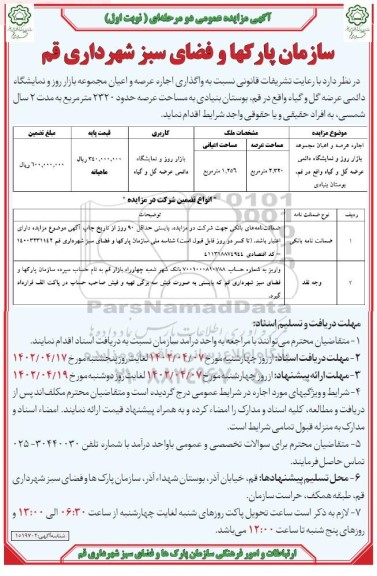 آگهی مزایده عمومی دو مرحله‌ای ( نوبت اول)
سازمان پارکها و فضای سبز شهرداری قم
در نظر دارد با رعایت تشریفات قانونی نسبت به واگذاری اجاره عرصه و اعیان مجموعه بازار روز و نمایشگاه
دائمی عرضه گل و گیاه واقع در قم، بوستان بنیادی به مساحت عرصه حدود ۲۳۲۰ مترمربع به مدت ۲ سال
شمسی، به افراد حقیقی و یا حقوقی واجد شرایط اقدام نماید.
موضوع مزایده مشخصات ملک کاربری قیمت پایه مبلغ تضمین
مساحت عرصه مساحت اعیانی
اجاره عرصه و اعیان مجموعه
بازار روز و نمایشگاه دائمی
عرضه گل و گیاه واقع در قم،
بوستان بنیادی
۲,۳۲۰ مترمربع ۱,۲۵۶ مترمربع بازار روز و نمایشگاه دائمی عرضه گل و گیاه ۲۴۰,۰۰۰,۰۰۰ ریال ماهیانه ۶۰۰,۰۰۰,۰۰۰ ریال
" انواع تضمین شرکت در مزایده "
ردیف نوع ضمانت نامه توضیحات
۱ ضمانت نامه بانکی ضمانت‌نامه‌های بانکی جهت شرکت در مزایده، بایستی حداقل ۹۰ روز از تاریخ چاپ آگهی موضوع مزایده دارای
اعتبار باشد. (تا کسر دو روز قابل قبول است) شناسه ملی سازمان پارکها و فضای سبز شهرداری قم ۱۴۰۰۳۳۳۱۱۴۲
- کد اقتصادی ۴۱۱۳۱۸۸۷۴۹۴۱
۲ وجه نقد واریز به شماره حساب بانک شهر شعبه چهارراه بازار قم به نام حساب سپرده سازمان پارکها و
فضای سبز شهرداری قم که بایستی به صورت فیش سه برگی تهیه و فیش صاحب حساب در پاکت الف قرارداد
گیرد.
مهلت دریافت و تسلیم اسناد:
۱- متقاضیان محترم می‌توانند با مراجعه به واحد درآمد سازمان نسبت به دریافت اسناد اقدام نمایند.
۲- مهلت دریافت اسناد: از روز چهارشنبه مورخ ۱۴۰۲/۰۴/۰۷ لغایت روز پنجشنبه مورخ ۱۴۰۲/۰۴/۱۷
۳- مهلت ارائه پیشنهاد: از روز چهارشنبه مورخ ۱۴۰۲/۰۴/۰۷ لغایت روز دوشنبه مورخ ۱۴۰۲/۰۴/۱۹
۴- شرایط و ویژگیهای مورد اجاره در شرایط عمومی درج گردیده است و متقاضیان محترم مکلف‌اند پس از
دریافت و مطالعه، کلیه اسناد و مدارک را امضاء کرده و به همراه پیشنهاد قیمت ارائه نمایند. امضاء اسناد و
مدارک به منزله قبول تمامی شرایط است.
۵- متقاضیان محترم برای سوالات تخصصی و عمومی با واحد درآمد با شماره تلفن ۳۰۴۴۰۰۳۰-۰۲۵
تماس حاصل فرمایند.
۶- محل تسلیم پیشنهادها: قم، خیابان آذر، بوستان شهداء آذر، سازمان پارک ها و فضای سبز شهرداری
قم، طبقه همکف، حراست سازمان.
۷- لازم به ذکر است ساعت تحویل پاکت روزهای شنبه لغایت چهارشنبه از ساعت ۰۶:۳۰ الی ۱۳:۰۰ و
روزهای پنج شنبه تا ساعت ۱۲:۰۰ می‌باشد.
ارتباطات و امور فرهنگی سازمان پارک ها و فضای سبز شهرداری قم
شناسه آگهی: ۱۵۱۹۷۰۲
ParsNamadData